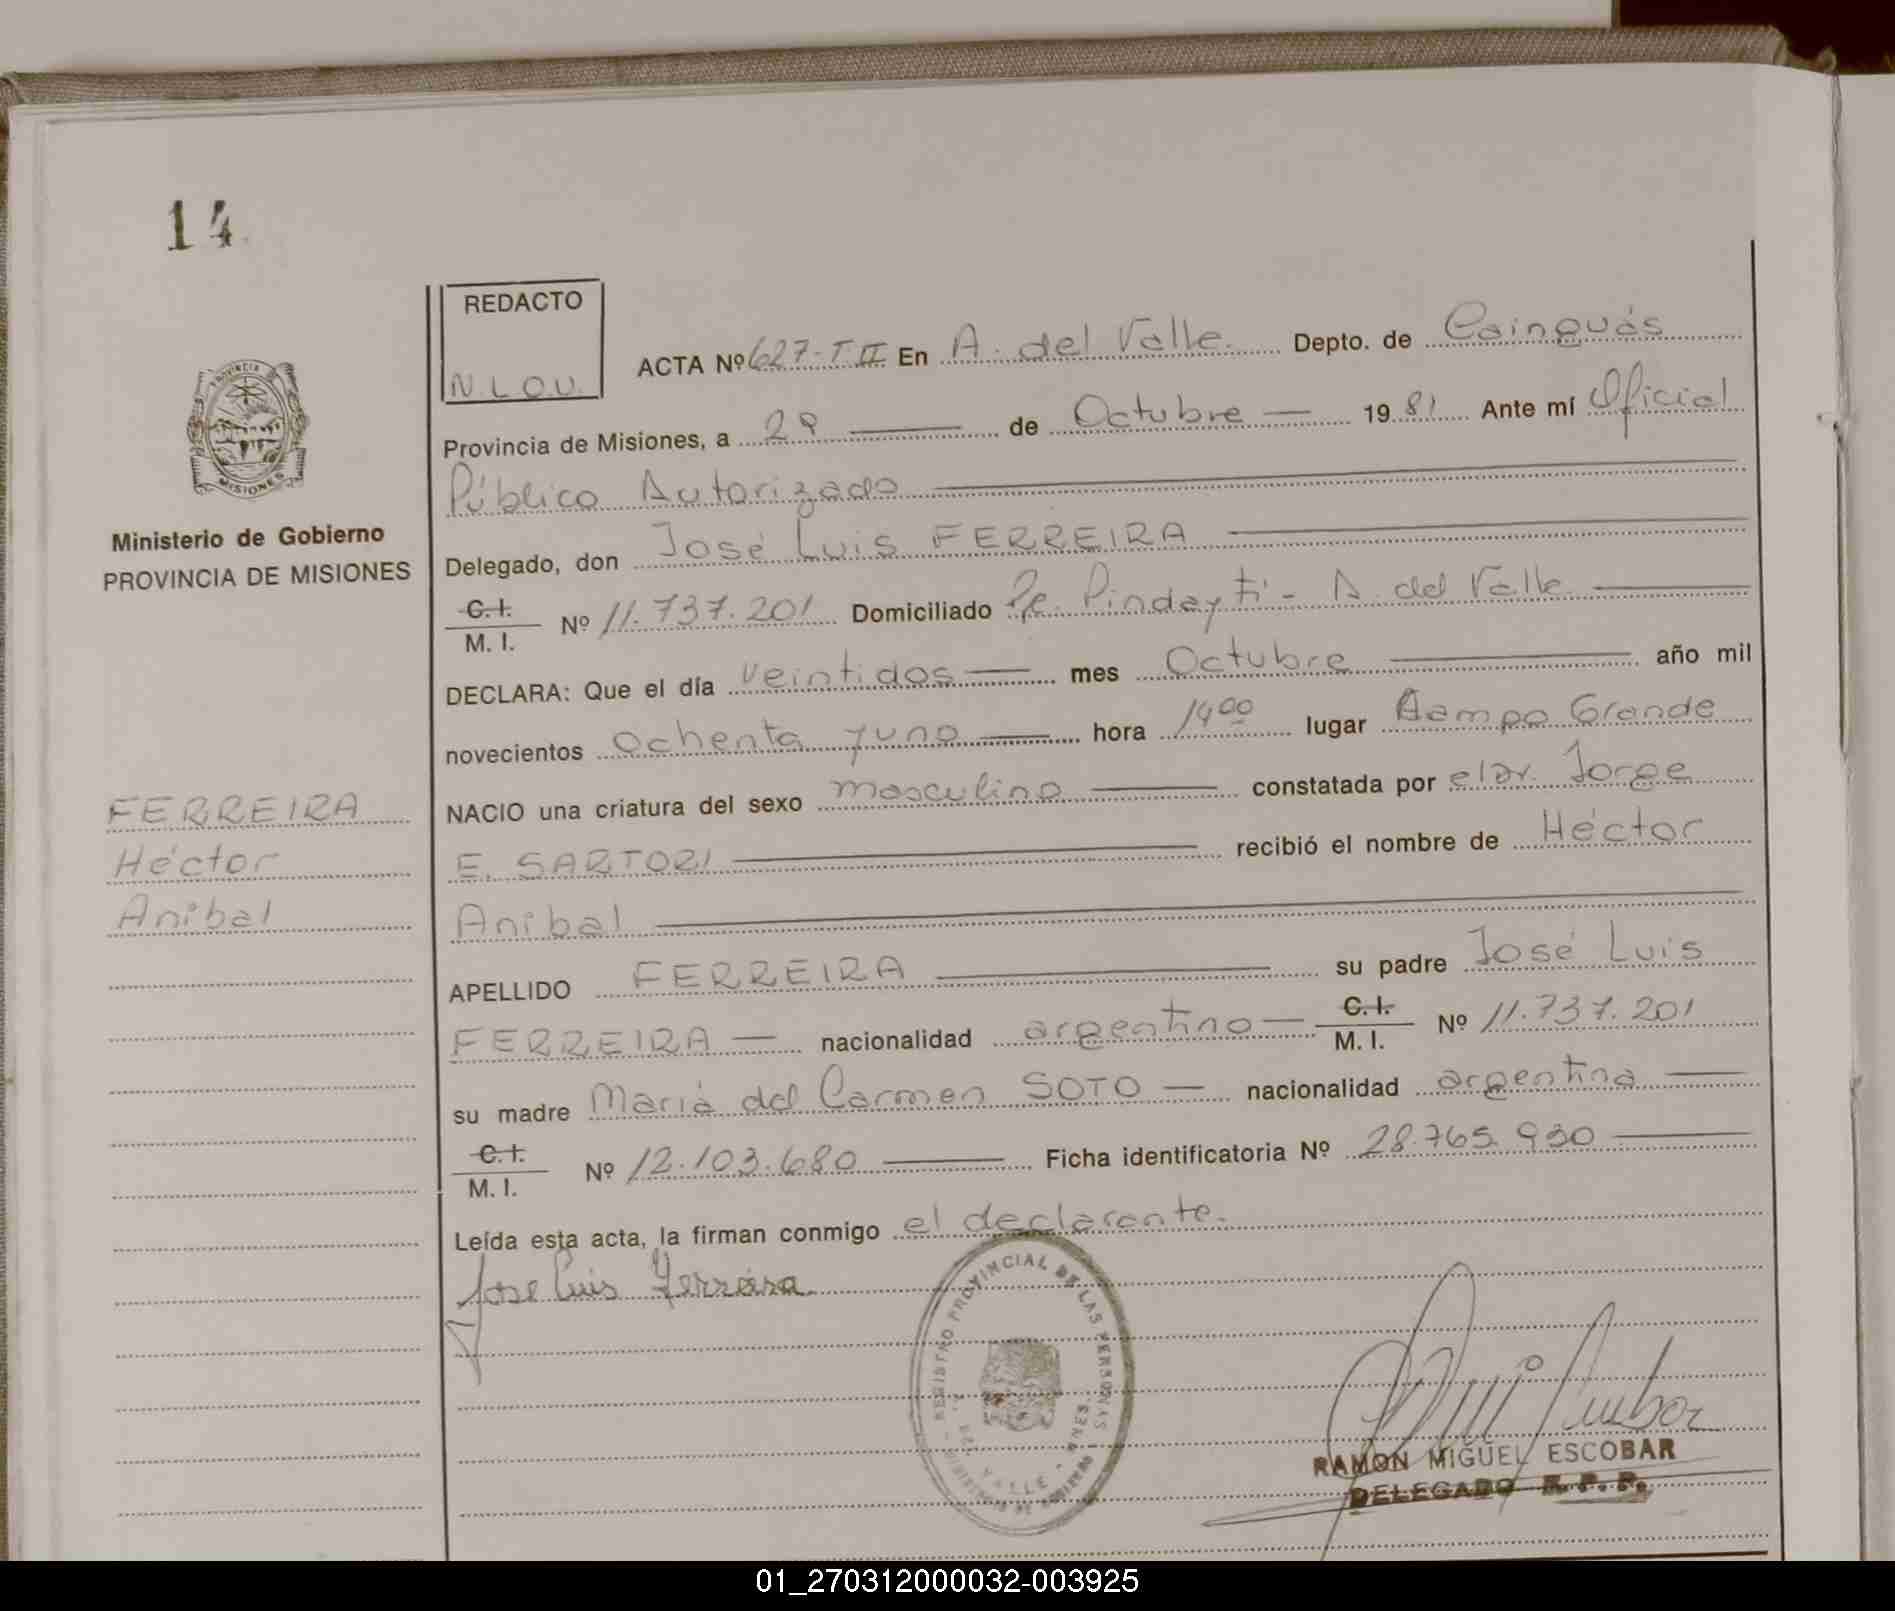 14
REDACTO
N.L.O.U.
ACTA Nº 627-T.II En A. del Valle. Depto. de Cainguás
Provincia de Misiones, a 29 de Octubre 1981 Ante mí Oficial
Público Autorizado
Delegado, don José Luis FERREIRA
C.I. M.I. Nº 11.737.201 Domiciliado Pe. Pindayti - A. del Valle
DECLARA: Que el día veintidos mes Octubre año mil
novecientos ochenta y uno hora 14⁰⁰ lugar Campo Grande
NACIO una criatura del sexo masculino constatada por el Dr. Jorge
E. SARTORI recibió el nombre de Héctor
Anibal
APELLIDO FERREIRA su padre José Luis
FERREIRA nacionalidad argentino C.I. M.I. Nº 11.737.201
su madre María del Carmen SOTO nacionalidad argentina
C.I. M.I. Nº 12.103.680 Ficha identificatoria Nº 28.765.930
Leída esta acta, la firman conmigo el declarante.
Jose Luis Ferreira
REGISTRO PROVINCIAL DE LAS PERSONAS
RAMON MIGUEL ESCOBAR
DELEGADO R.P.P.
PROVINCIA
MISIONES
Ministerio de Gobierno
PROVINCIA DE MISIONES
FERREIRA
Héctor
Anibal
01_270312000032-003925